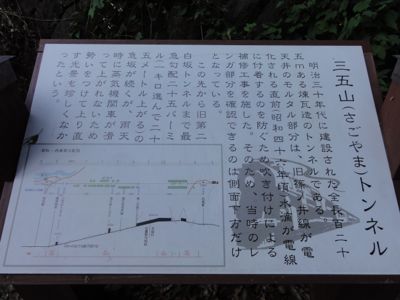 三五山(さごやま)トンネル
明治三十年代に建設された全長百二十
五mある煉瓦造のトンネルである。
天井のモルタル部分は、旧篠ノ井線が電
化される直前(昭和四十六年頃)水滴が電線
に付着するのを防ぐため吹き付けによる
補修工事を施した。そのため、当時のレ
ンガ部分を確認できるのは側面下方だけ
となっている。
この先から旧第二
白坂トンネルまで最
急勾配二十五パーミ
ル(一キロ進んで二十
五メートル上がる)の
急坂が続くが、雨天
時に蒸気機関車が滑
って上がれないため
勢いをつけて上り直
す光景を珍しくなか
ったという。